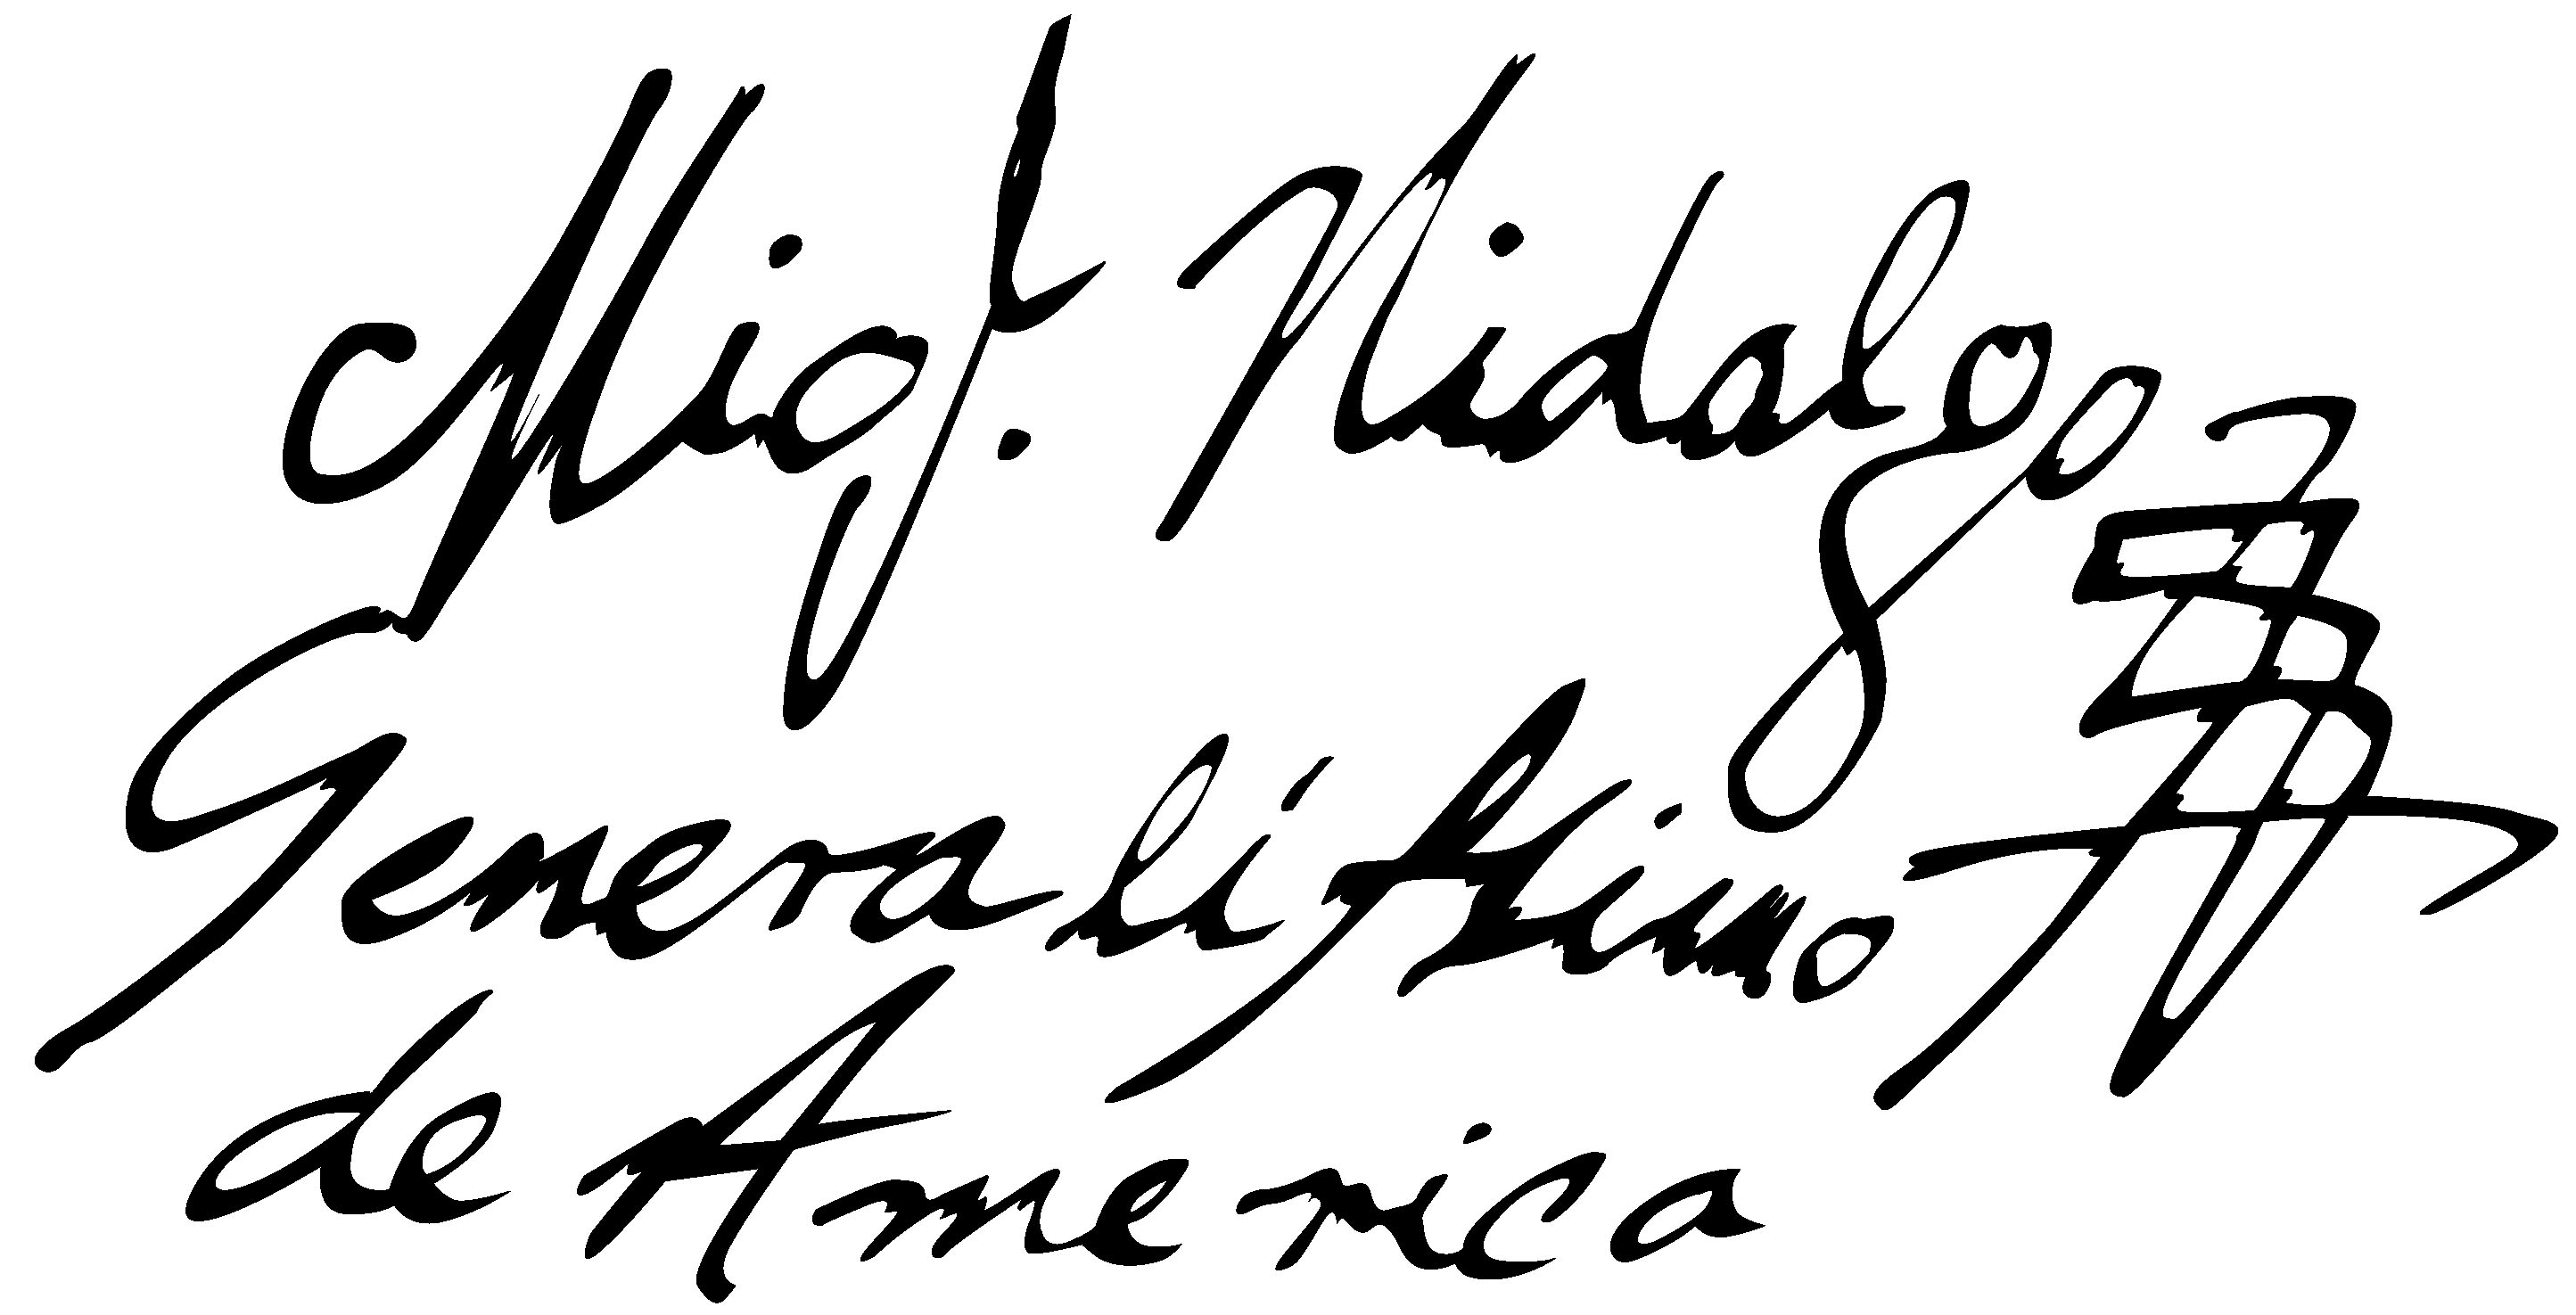 Migl. Hidalgo
Generalíssimo
de America